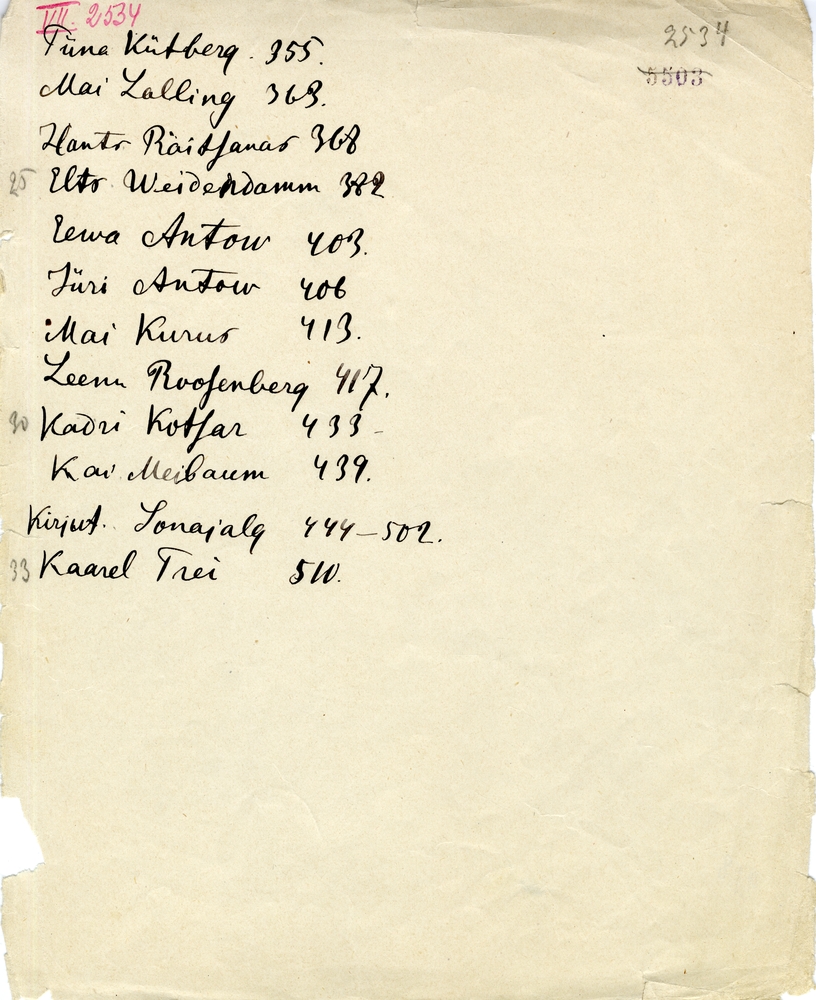 VII. 2534
2534
5503
Tiina Kütberg. 355.
Mai Lalling 363.
Hants Räitsanas 368
25 Elts Weidendamm 382
Eewa Antow 403.
Jüri Antow 406
Mai Kurus 413.
Leena Roosenberg 417.
30 Kadri Kotsar 433-
Kai Meibaum 439.
Kirjut. Sonajalg 444-502.
33 Kaarel Trei 510.